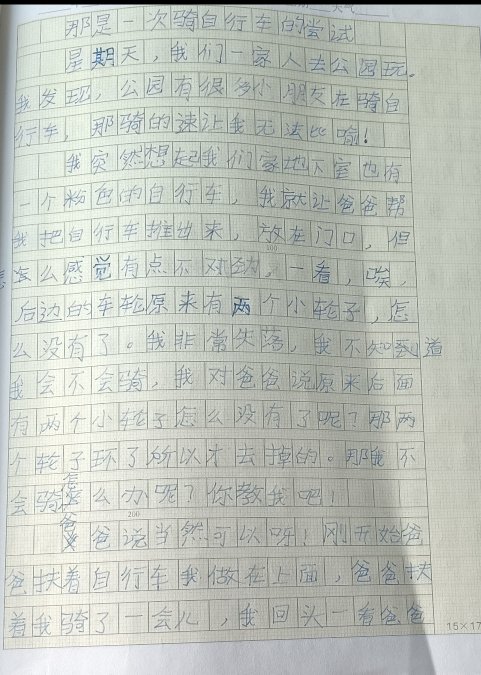 那是一次骑自行车的尝试
星期天，我们一家人去公园玩。
我发现，公园有很多小朋友在骑自
行车，那骑的速让我无法比喻！
我突然想起我们家地下室也有
一个粉色的自行车，我就让爸爸帮
我把自行车推出来，放在门口，但
怎么感觉有点不对劲。一看，唉，
后边的车轮原来有两个小轮子，怎
么没有了。我非常失落，我不知到道
我会不会骑，我对爸爸说原来后面
有两个小轮子怎么没有了呢？那两
个轮子环了所以才去掉的。那我不
会骑怎么办呢？你教我吧！
200
爸爸说当然可以呀！刚开始爸
爸扶着自行车我做在上面，爸爸扶
着我骑了一会儿，我回头一看爸爸
15×17